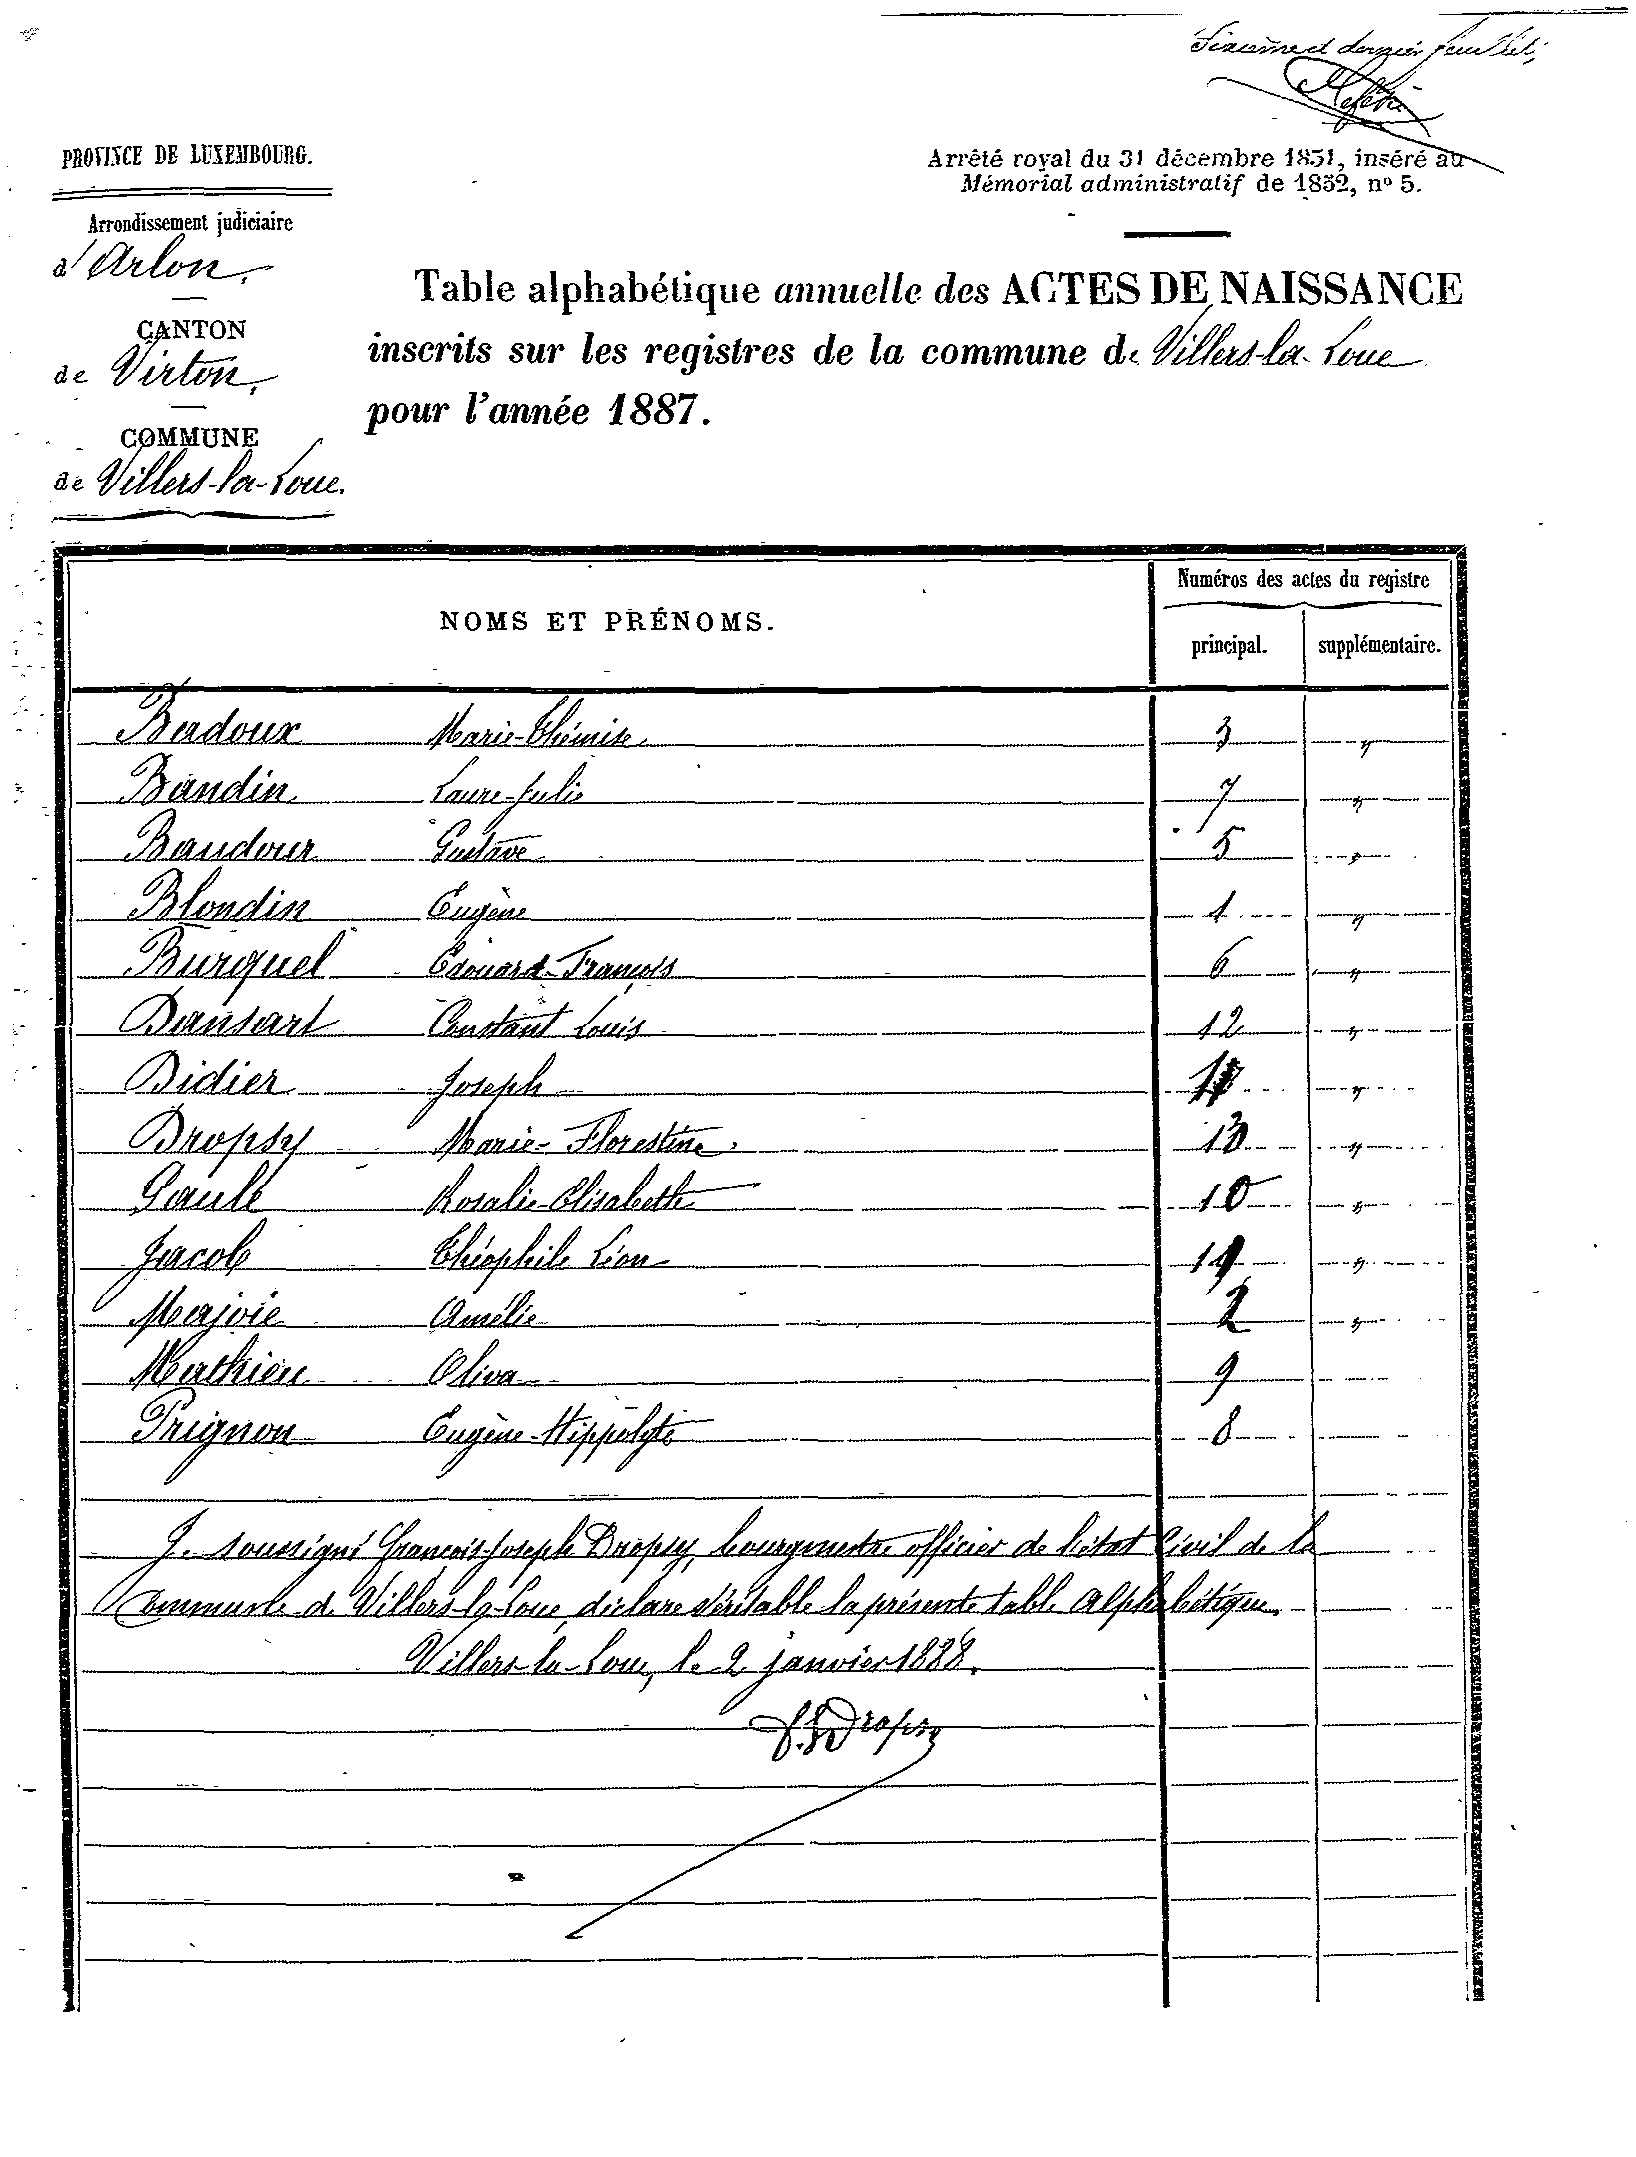 Sixième et dernier feuillet,
PROVINCE DE LUXEMBOURG.
Arrêté royal du 31 décembre 1831, inséré au
Mémorial administratif de 1832, nº 5.
Arrondissement judiciaire
d'Arlon.
CANTON
de Virton.
COMMUNE
de Villers-la-Loue.
Table alphabétique annuelle des ACTES DE NAISSANCE
inscrits sur les registres de la commune de Villers-la-Loue
pour l'année 1887.
NOMS ET PRÉNOMS. Numéros des actes du registre
principal. supplémentaire.
Badoux Marie-Thémise 3 "
Baudin Laure-Julie 7 "
Baudoux Gustave 5 "
Blondin Eugène 1 "
Burquel Edouard-François 6 "
Dansart Constant Louis 12 "
Didier Joseph "
Dropsy Marie-Florestine 13 "
Gaule Rosalie-Elisabeth 10 "
Jacob Théophile Léon "
Majoie Amélie 2 "
Mathieu Oliva 9
Prignon Eugène-Hippolyte 8
Je soussigné François-Joseph Dropsy, bourgmestre officier de l'état Civil de la
Commune de Villers-la-Loue, déclare véritable la présente table Alphabétique.
Villers-la-Loue, le 2 janvier 1888.
F. J. Dropsy